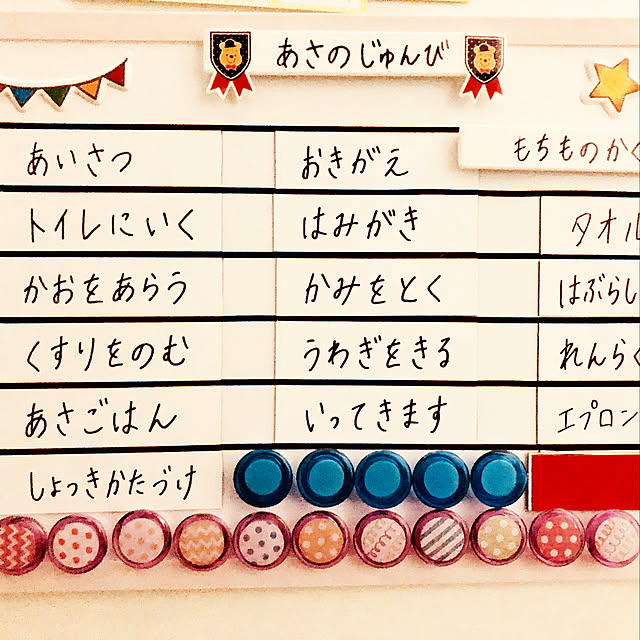 あさのじゅんび
あいさつ
トイレにいく
かおをあらう
くすりをのむ
あさごはん
しょっきかたづけ
おきがえ
はみがき
かみをとく
うわぎをきる
いってきます
もちものかく
タオル
はぶらし
れんらく
エプロン